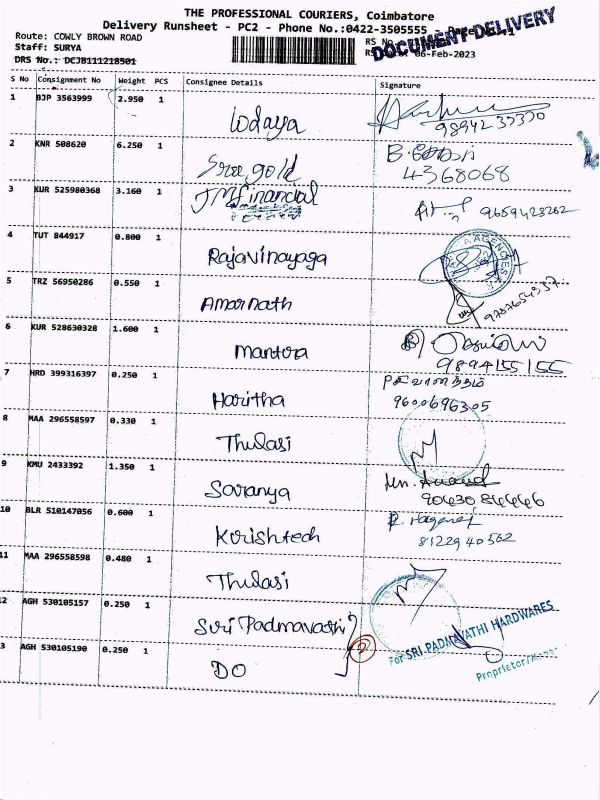 THE PROFESSIONAL COURIERS, Coimbatore
Delivery Runsheet - PC2 - Phone No.:0422-3505555
DOCUMENT DELIVERY
Route: COWLY BROWN ROAD
RS No
Staff: SURYA
06-Feb-2023
DRS No.: DCJB111218501
S No Consignment No Weight PCS Consignee Details Signature
1 BJP 3563999 2.950 1 Lodaya
9894237370
2 KNR 508620 6.250 1 Sree gold
4368068
3 KUR 525980368 3.160 1 JMfinancial
9659423262
4 TUT 844917 0.800 1 Rajavinayaga
AGENCIES
5 TRZ 56950286 0.550 1 Amarnath
9787654937
6 KUR 528630328 1.600 1 mantra
9894155155
7 HRD 399316397 0.250 1 Haritha
9600696305
8 MAA 296558597 0.330 1 Thulasi
9 KMU 2433392 1.350 1 Soranya
Mn. Anand
9043084446
10 BLR 510147056 0.600 1 Krishtech
8122940562
11 MAA 296558598 0.480 1 Thulasi
2 AGH 530105157 0.250 1 Suri Padmavathi
2
For SRI PADMAVATHI HARDWARES
3 AGH 530105190 0.250 1 DO
Proprietor